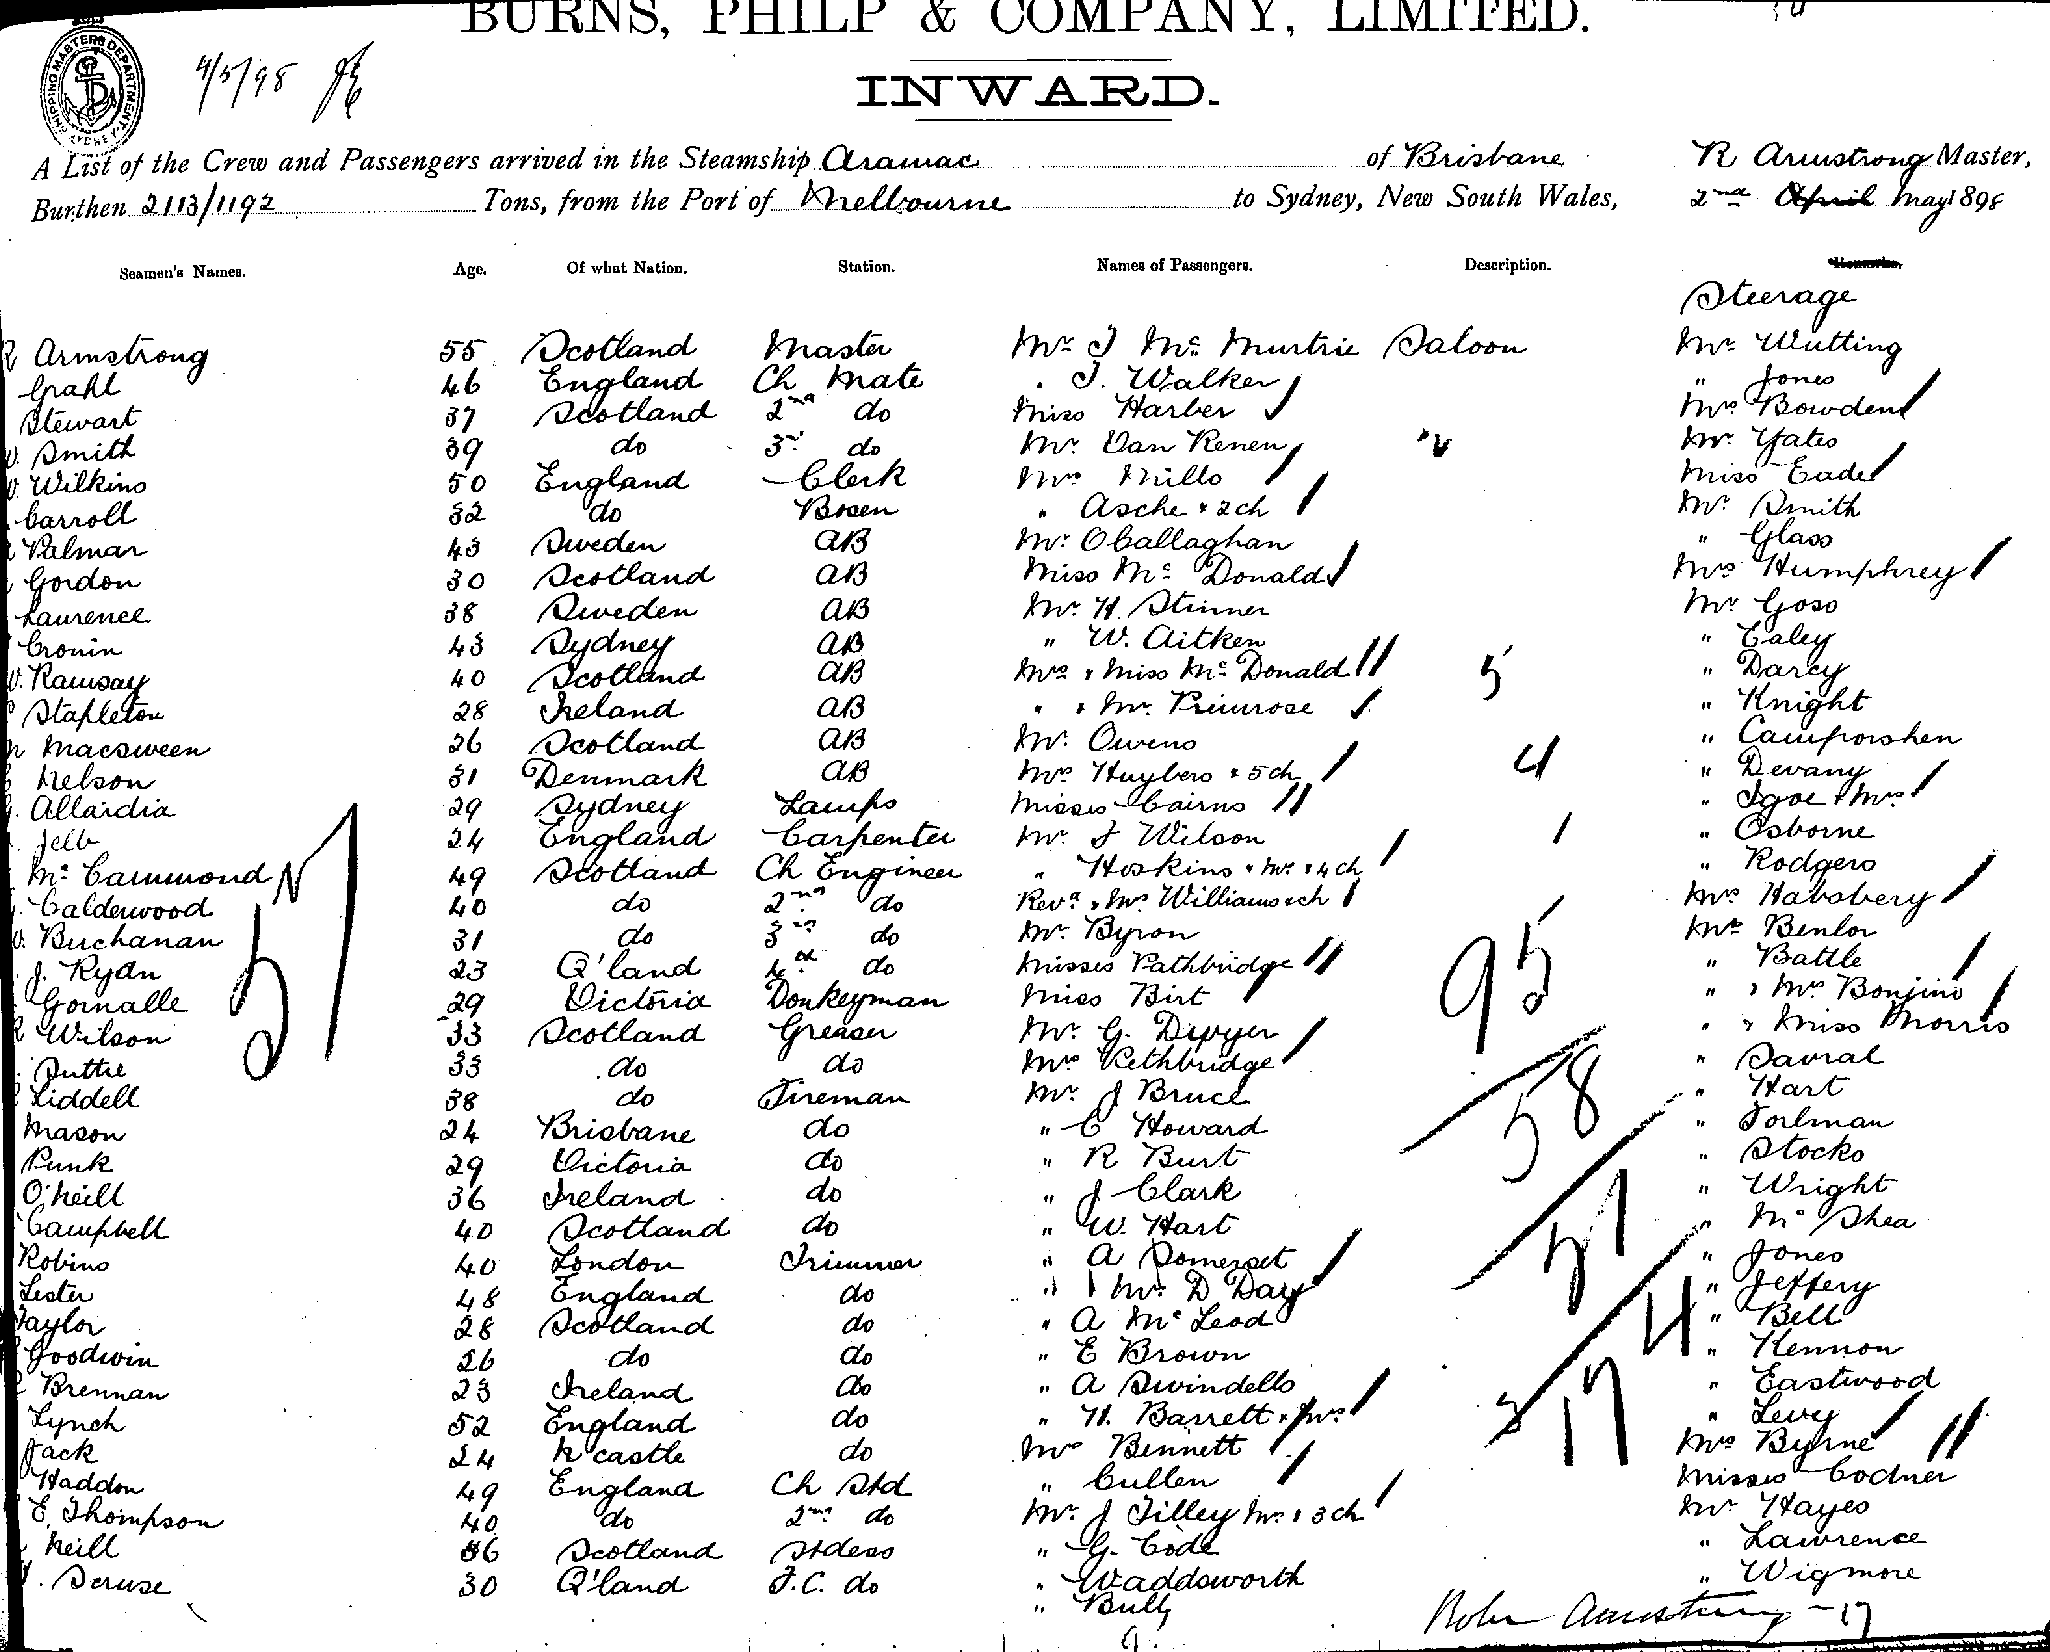 BURNS, PHILP & COMPANY, LIMITED.
INWARD.
SHIPPING MASTERS DEPARTMENT SYDNEY
4/5/98
A List of the Crew and Passengers arrived in the Steamship Aramac of Brisbane R Armstrong Master,
Burthen 2113/1192 Tons, from the Port of Melbourne to Sydney, New South Wales, 2nd April May 1898
Seamen's Names. Age. Of what Nation. Station. Names of Passengers. Description. Remarks.
Steerage
R Armstrong 55 Scotland Master Mr J Mc Murtrie Saloon Mr Wutting
Grahl 46 England Ch Mate " J. Walker " Jones
Stewart 37 Scotland 2nd do Miss Harber Mrs Bowden
Smith 39 do 3rd do Mr. Van Renen " Mr Yates
Wilkins 50 England Clerk Mrs Mills Miss Eade
Carroll 32 do Bosen " Asche & 2 ch Mr. Smith
Palmar 43 Sweden AB Mr. OCallaghan " Glass
Gordon 30 Scotland AB Miss Mc Donald Mrs Humphrey
Laurence 38 Sweden AB Mr. H. Stinner Mr Goss
Cronin 43 Sydney AB " W. Aitken " Caley
Ramsay 40 Scotland AB Mrs & Miss Mc Donald 5 " Darcy
Stapleton 28 Ireland AB " & Mr. Primrose " Knight
Macsween 26 Scotland AB Mr. Owens "
Nelson 31 Denmark AB Mrs Huybers & 5 ch 4 " Devany
Allardia 29 Sydney Lamps Misses Cairns " Igoe & Mrs
Jelb 24 England Carpenter Mr. J Wilson 1 " Osborne
Mc Cammond 49 Scotland Ch Engineer " Hoskins & Mrs & 4 ch " Rodgers
Calderwood 40 do 2nd do Revd & Mrs Williams & ch Mrs Habsbery
Buchanan 31 do 3rd do Mr. Byron Mr Benlor
J. Ryan 23 Q'land 4th do Misses Pathbridge 95 " Battle
Gornalle 29 Victoria Donkeyman Miss Birt " & Mrs Bonjino
R Wilson 33 Scotland Greaser Mr. G. Dwyer " & Miss Morris
Suttie 33 do do Mrs Pethbridge " Savral
Liddell 38 do Fireman Mr. J Bruce 58 " Hart
Mason 24 Brisbane do " C Howard " Torlman
Punk 29 Victoria do " R Burt " Stocks
O'Neill 36 Ireland do " J Clark " Wright
Campbell 40 Scotland do " W. Hart " Mc Shea
Robins 40 London Trimmer " A Somerset " Jones
Lester 48 England do " Mrs D Day " Jeffery
Taylor 28 Scotland do " A Mc Leod 4 " Bell
Goodwin 26 do do " E Brown " Kennon
Brennan 23 Ireland do " A Swindells " Eastwood
Lynch 52 England do " H. Barrett & Mrs 17 " Levy
Jack 24 N'castle do Mrs Bennett Mrs Byrne
Haddon 49 England Ch Std " Cullen Misses Codner
E. Thompson 40 do 2nd do Mr. J Tilley Mrs & 3 ch Mr Hayes
Neill 36 Scotland Stdess " G. Code " Lawrence
Scruse 30 Q'land F.C. do " Waddsworth " Wigmore
" Bull
Robr Armstrong - 17
57